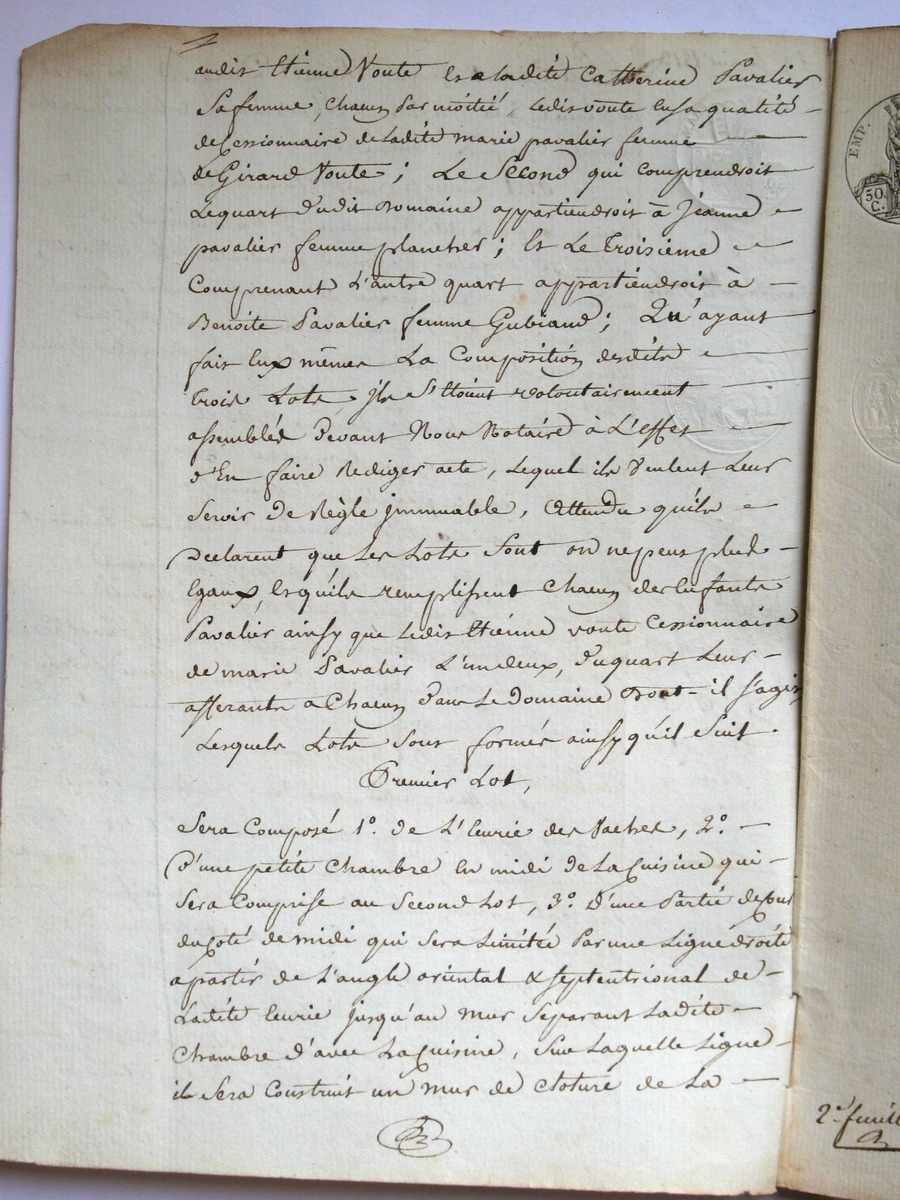 audit Etienne Voute Et a ladite Catherine Pavalier
Sa femme, chacun Par moitié, ledit voute en sa qualité
de Cessionnaire de Ladite marie pavalier femme
de Girard Voute ; Le Second qui comprendroit
Le quart dudit Domaine appartiendroit à Jeanne
pavalier femme planches ; Et Le Troisieme
Comprenant L'autre quart appartiendroit à
Benoite Pavalier femme Gubiand ; Qu'ayant
fait Eux mêmes La Composition desdits
Trois Lots, jls S'Etoient volontairement
assemblés Devant Nous Notaire à L'effet
d'En faire Rediger acte, Lequel ils veulent Leur
Servir De Règle jmmuable, Attendu qu'ils
Declarent que Les Lots Sont on ne peut plus
Egaux, Et qu'ils remplissent Chacun des Enfants
Pavalier ainsy que Ledit Etienne voute Cessionnaire
de marie Pavalier L'un deux, Du quart Leur
afferants a Chacun Dans Le Domaine Dont il s'agit,
Lesquels Lots Sont formés ainsy qu'il Suit.
Premier Lot,
Sera Composé 1º. de L'Ecurie des Vaches, 2º.
D'une petite Chambre En midi de La Cuisine qui
Sera Comprise au Second Lot, 3º. D'une Partie de Cour
du Coté de midi qui Sera Limitée Par une Ligne droite
a partir de L'angle oriental & septentrional de
Ladite Ecurie jusqu'au mur Separant Ladite
Chambre d'avec La Cuisine, Sur Laquelle Ligne
il Sera Construit un mur de Cloture de La
EMP.
50
C.
2e feuill